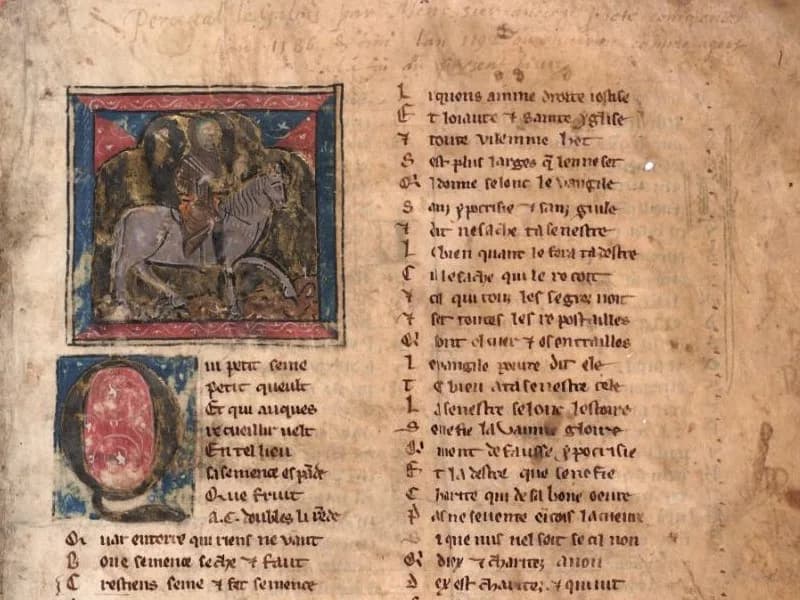 Perceval le Galois par
1186 & fini lan
Qui petit seme
petit queult
Et qui auques
recueillir velt
En tel lieu
sa semence espāde
Que fruit
.A.C. doubles li rēde
Quar en terre qui riens ne vaut
Bone semence seche ⁊ faut
Crestiens seme ⁊ fet semence
Li quens aimme droite iostise
Et loiaute ⁊ sainte yglise
⁊ toute vilennie het
S est plus larges q̄ len ne set
Ql donne selonc levangile
Sanz ypocrisie ⁊ sanz guile
⁊ dit ne sache ta senestre
L bien quant le fera ta destre
Cil le sache qui le recoit
⁊ cil qui touz les segrez voit
⁊ set toutes les repostailles
Qi sont el cuer ⁊ es entrailles
Levangile pourc dit ele
Te bien a ta senestre cele
La senestre selonc lestoire
Senefie la vainne gloire
Qi vient de fausse ypocrisie
Et la destre que senefie
Charite qui de sa bone oeure
Pas ne se vente eicois la cueure
Si que nus nel soit se cil non
Qi diex ⁊ charitez a non
Dex est charitez ⁊ qui vit